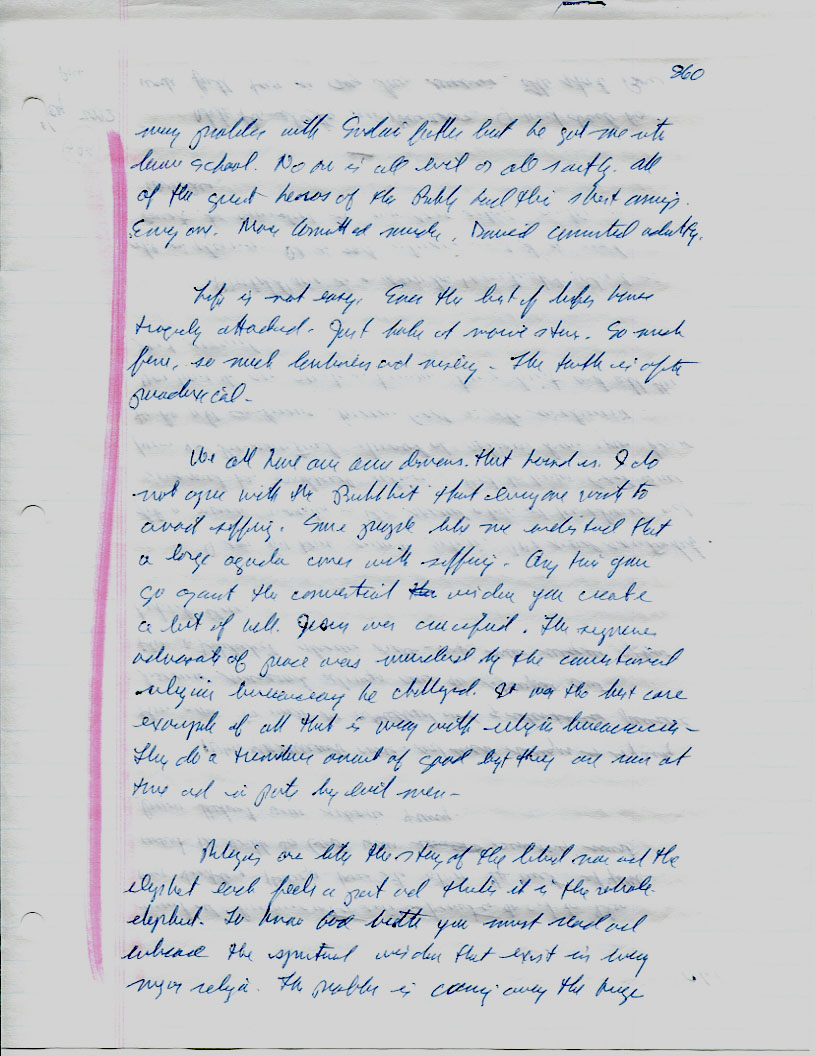 860
many problems with father but he got me into
law school. No one is all evil or all saintly. All
of the great heroes of the Bible had their short comings.
Everyone. Moses committed murder. David committed adultry.
Life is not easy. Even the best of lifes
tragedy attached. Just look at movie stars. So much
fame, so much and misery - The truth is often
paradoxical -
We all have our own demons that us. I do
not agree with the Buddhist that everyone wants to
avoid suffering. Some people like me understand that
a large agenda comes with suffering. Any time you
go against the conventional wisdom you create
a lot of hell. Jesus was crucified. The supreme
advocate of peace was murdered by the conventional
religious bureaucracy he challenged. It was the best case
example of all that is wrong with religious bureaucracies -
They do a tremendous amount of good but they are run at
times and in parts by evil men -
Religions are like the story of the blind man and the
elephant each feels a part and thinks it is the whole
elephant. To know God better you must read and
embrace the spiritual wisdom that exist in every
major religion. The problem is away the huge